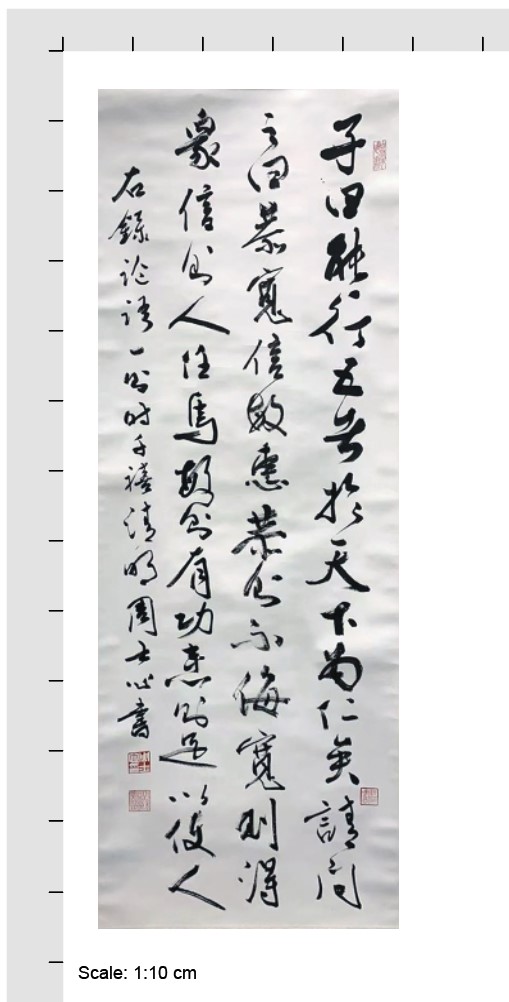 子曰能行五者於天下為仁矣請问
之曰恭寬信敏惠恭則不侮寬則得
眾信則人任焉敏則有功惠則足以使人
右錄论语一则时千禧清明周士心書
Scale: 1:10 cm